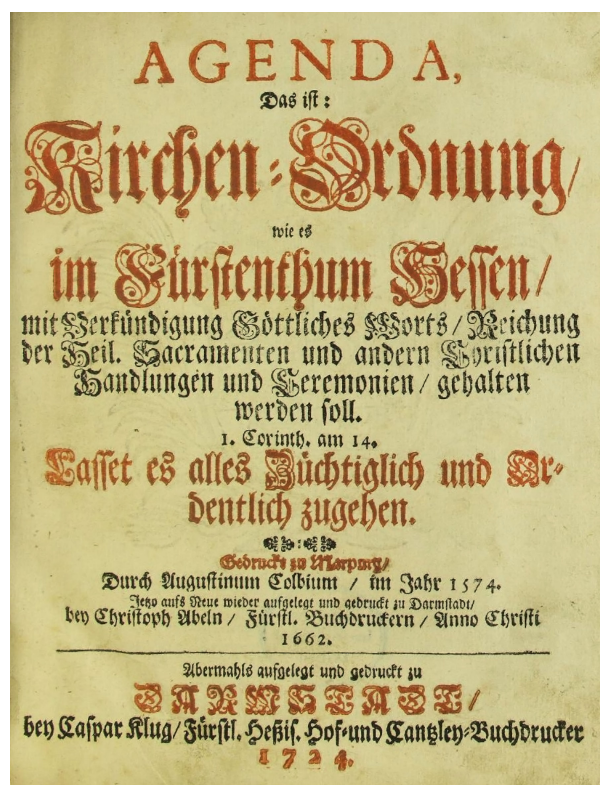 AGENDA,
Das ist:
Kirchen-Ordnung/
wie es
im Fürstenthum Hessen/
mit Verkündigung Göttliches Worts/ Reichung
der Heil. Sacramenten und andern Christlichen
Handlungen und Ceremonien/ gehalten
werden soll.
1. Corinth. am 14.
Lasset es alles Züchtiglich und Or-
dentlich zugehen.
Gedruckt zu Marpurg/
Durch Augustinum Colbium / im Jahr 1574.
Jetzo aufs Neue wieder aufgelegt und gedruckt zu Darmstadt/
bey Christoph Abeln / Fürstl. Buchdruckern / Anno Christi
1662.
Abermahls aufgelegt und gedruckt zu
DARMSTADT/
bey Caspar Klug/ Fürstl. Heßis. Hof-und Cantzley-Buchdrucker
1724.